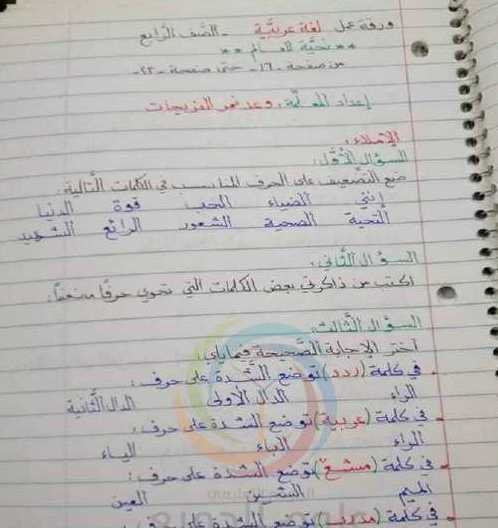 ورقة عمل لغة عربيّة - الصّف الرّابع
** تحيّة للعالم **
من صفحة -١٦- حتى صفحة -٢٣-
إعداد المعلّمة: وعد نمر الفريجات
الإملاء:
السؤال الأوّل:
ضع التّضعيف على الحرف المناسب في الكلمات التّالية:
إنني الضياء الحب قوة الدنيا
التحية الصحية الشعور الرائع الشهيد
السؤال الثّاني:
اكتب من ذاكرتي بعض الكلمات التي تحوي حرفًا مضعفًا:
السؤال الثّالث:
أختر الإجابة الصّحيحة فيما يلي:
في كلمة (ردد) توضع الشّدة على حرف:
الراء الدال الأولى الدال الثّانية
في كلمة (عربية) توضع الشّدة على حرف:
الراء الباء الياء
في كلمة (مشع) توضع الشّدة على حرف:
الميم الشين العين
في كلمة توضع الشّدة على حرف: